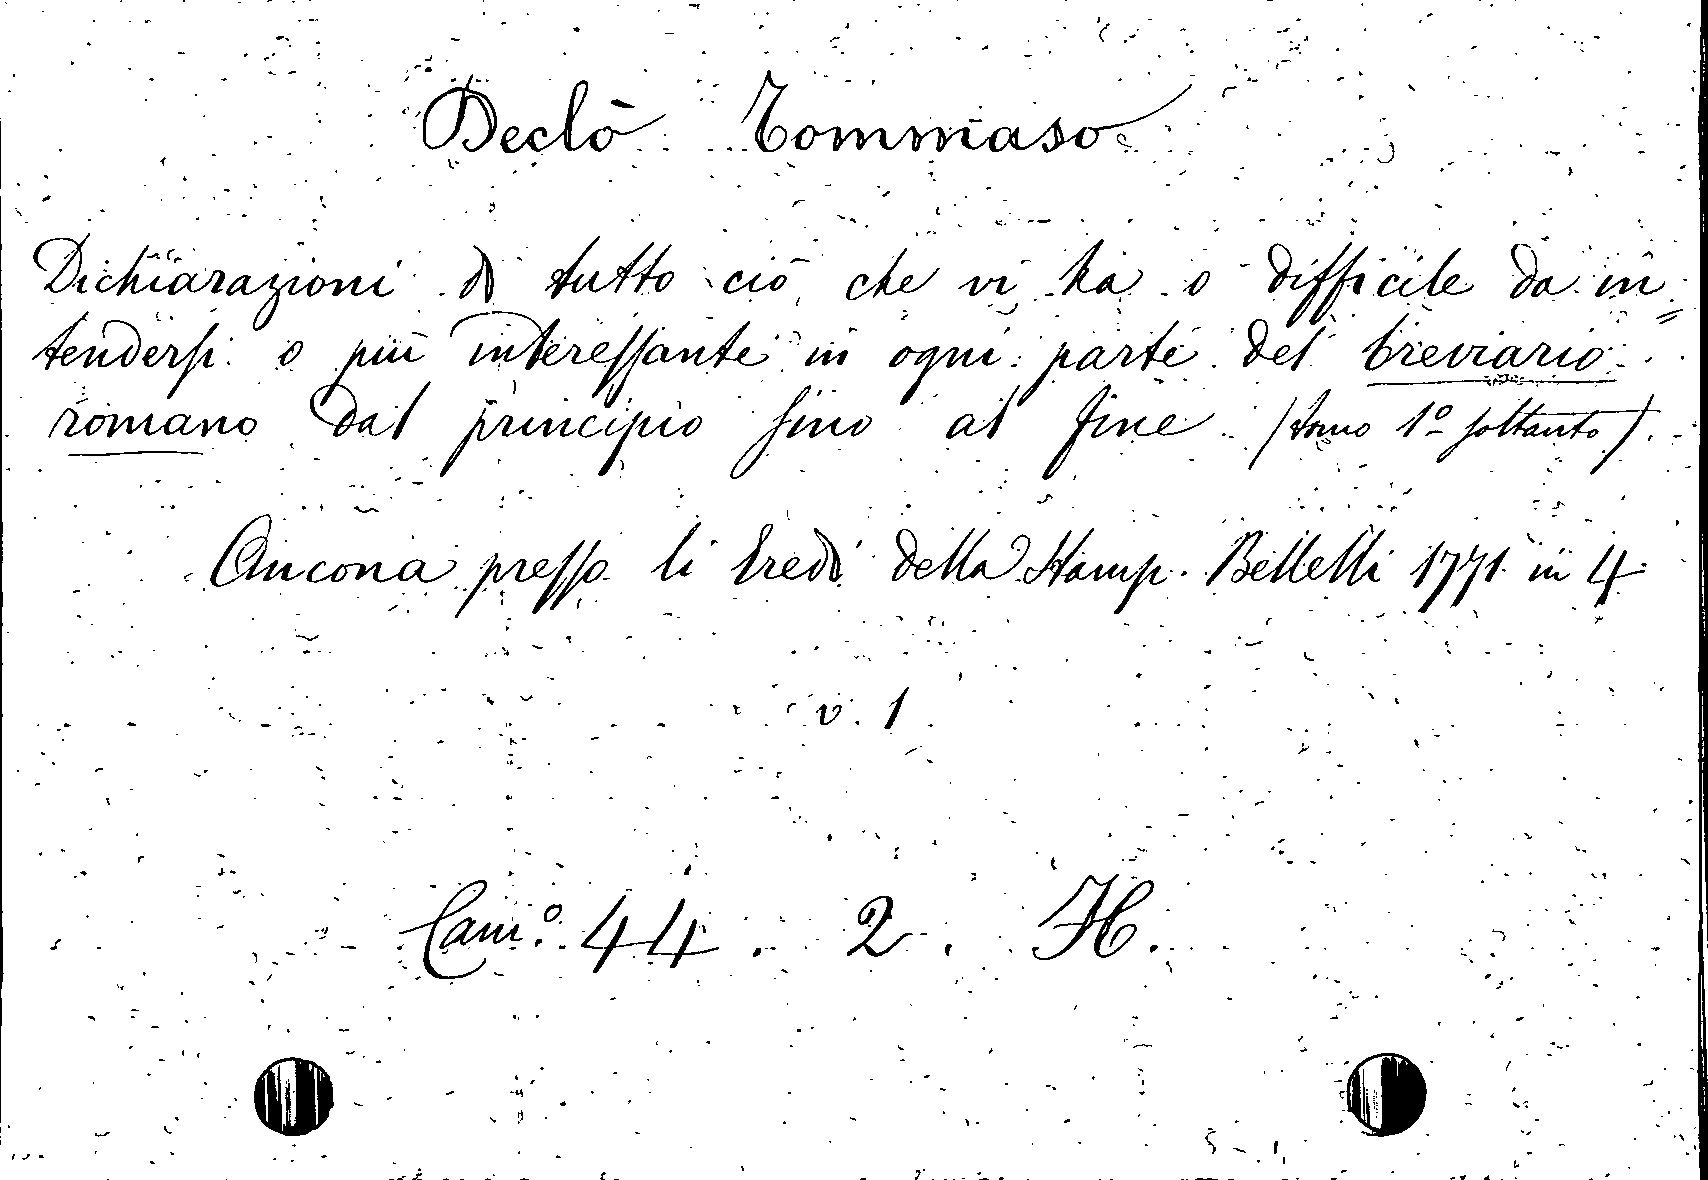 Declò Tommaso
Dichiarazioni di tutto ciò che vi ha o difficile da in=
tendersi o più interessante in ogni parte del breviario
romano dal principio fino al fine (tomo 1º soltanto)
Ancona presso li Eredi della Stamp. Bellelli 1771 in 4
v. 1
Camº. 44. 2. H.